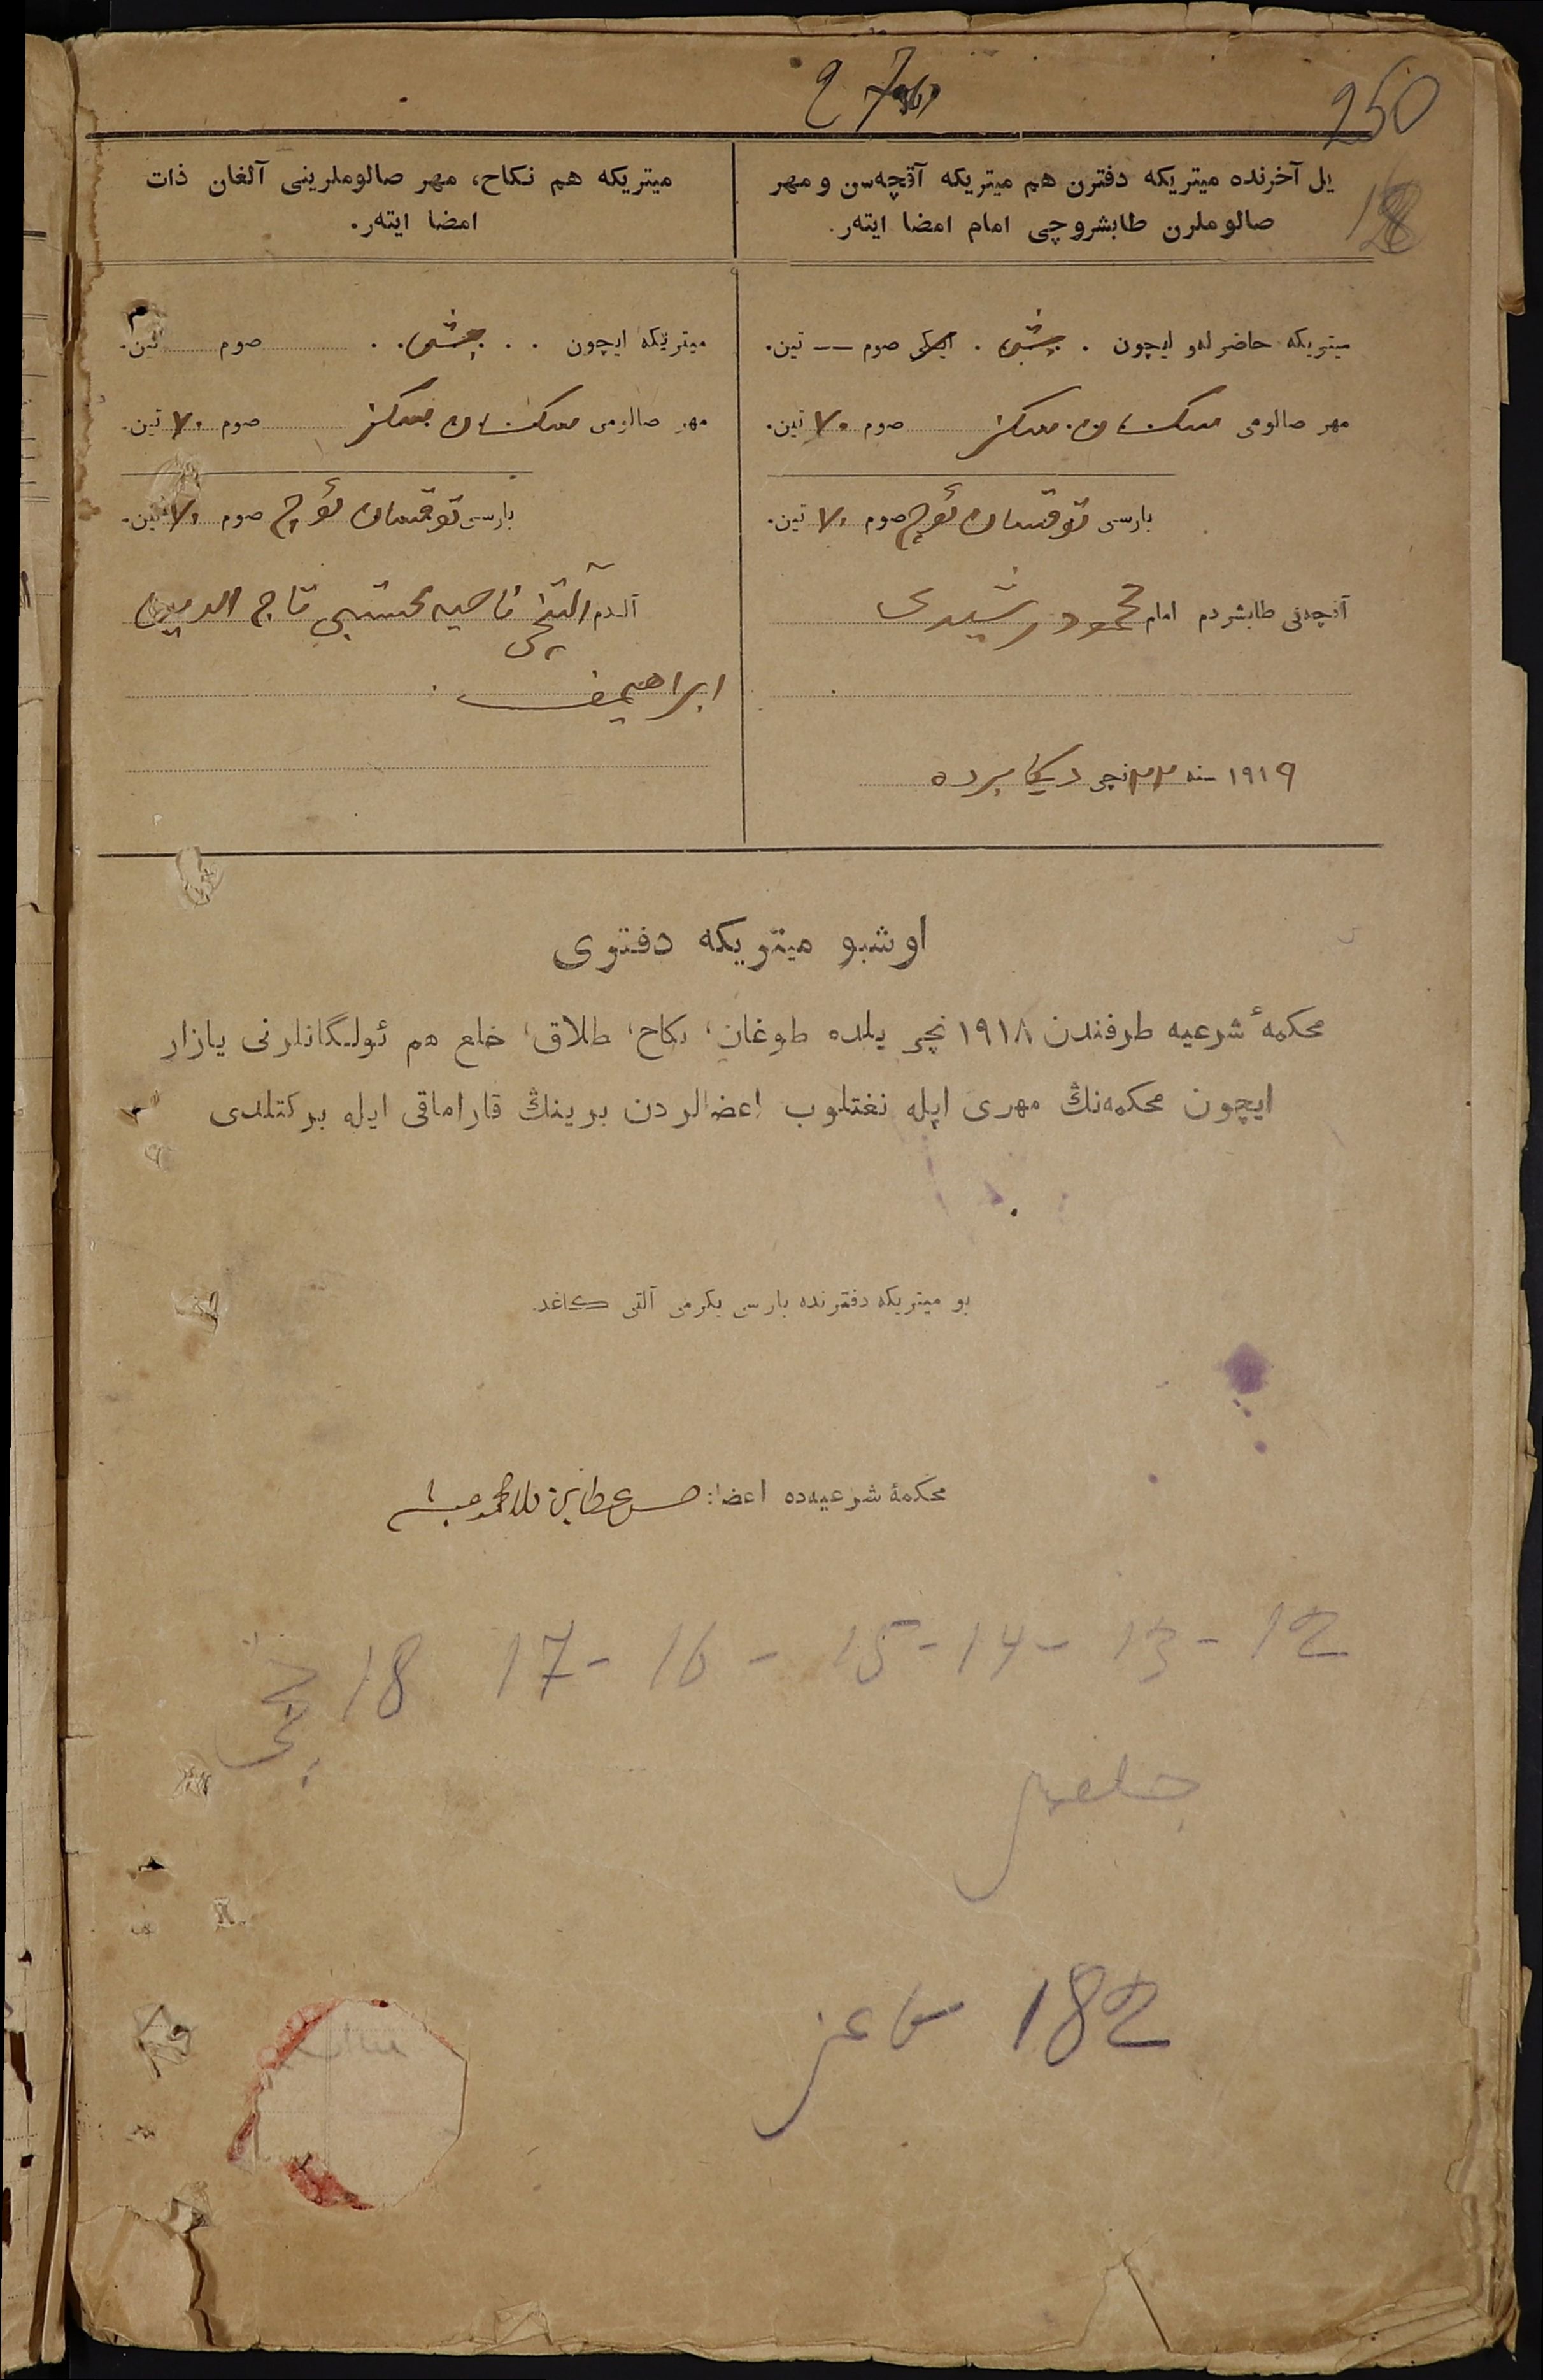 250
یل آخرنده میتریکه دفترن هم میتریکه آقچه‌سن و مهر
صالوملرن طابشروچی امام امضا ایته‌ر.
میتریکه حاضرله‌و ایچون . بیش . صوم —— تین.
مهر صالومی سکسان سکز صوم ۷۰ تین.
بارسی توقسان ئوچ صوم ۷۰ تین.
آقچه‌نی طابشردم امام محمود رشیدی
۱۹۱۹ سنه ۲۲ نچی دیکابرده
میتریکه هم نکاح، مهر صالوملرینی آلغان ذات
امضا ایته‌ر.
میتریکه ایچون . . بیش . . صوم تین.
مهر صالومی سکسان سکز صوم ۷۰ تین.
بارسی توقسان ئوچ صوم ۷۰ تین.
آلدم آلتنچی ناحیه محتسبی تاج الدین
ابراهیمف
اوشبو میتریکه دفتری
محکمهٔ شرعیه طرفندن ۱۹۱۸ نچی یلده طوغان، نکاح، طلاق، خلع هم ئولگانلرنی یازار
ایچون محکمه‌نڭ مهری ایله نغتلوب اعضالردن برینڭ قاراماقی ایله برکتلدی
بو میتریکه دفترنده بارسی یکرمی آلتی کاغد.
محکمهٔ شرعیه‌ده اعضا:
18 17 - 16 - 15 - 14 - 13 - 12
182 کاغز